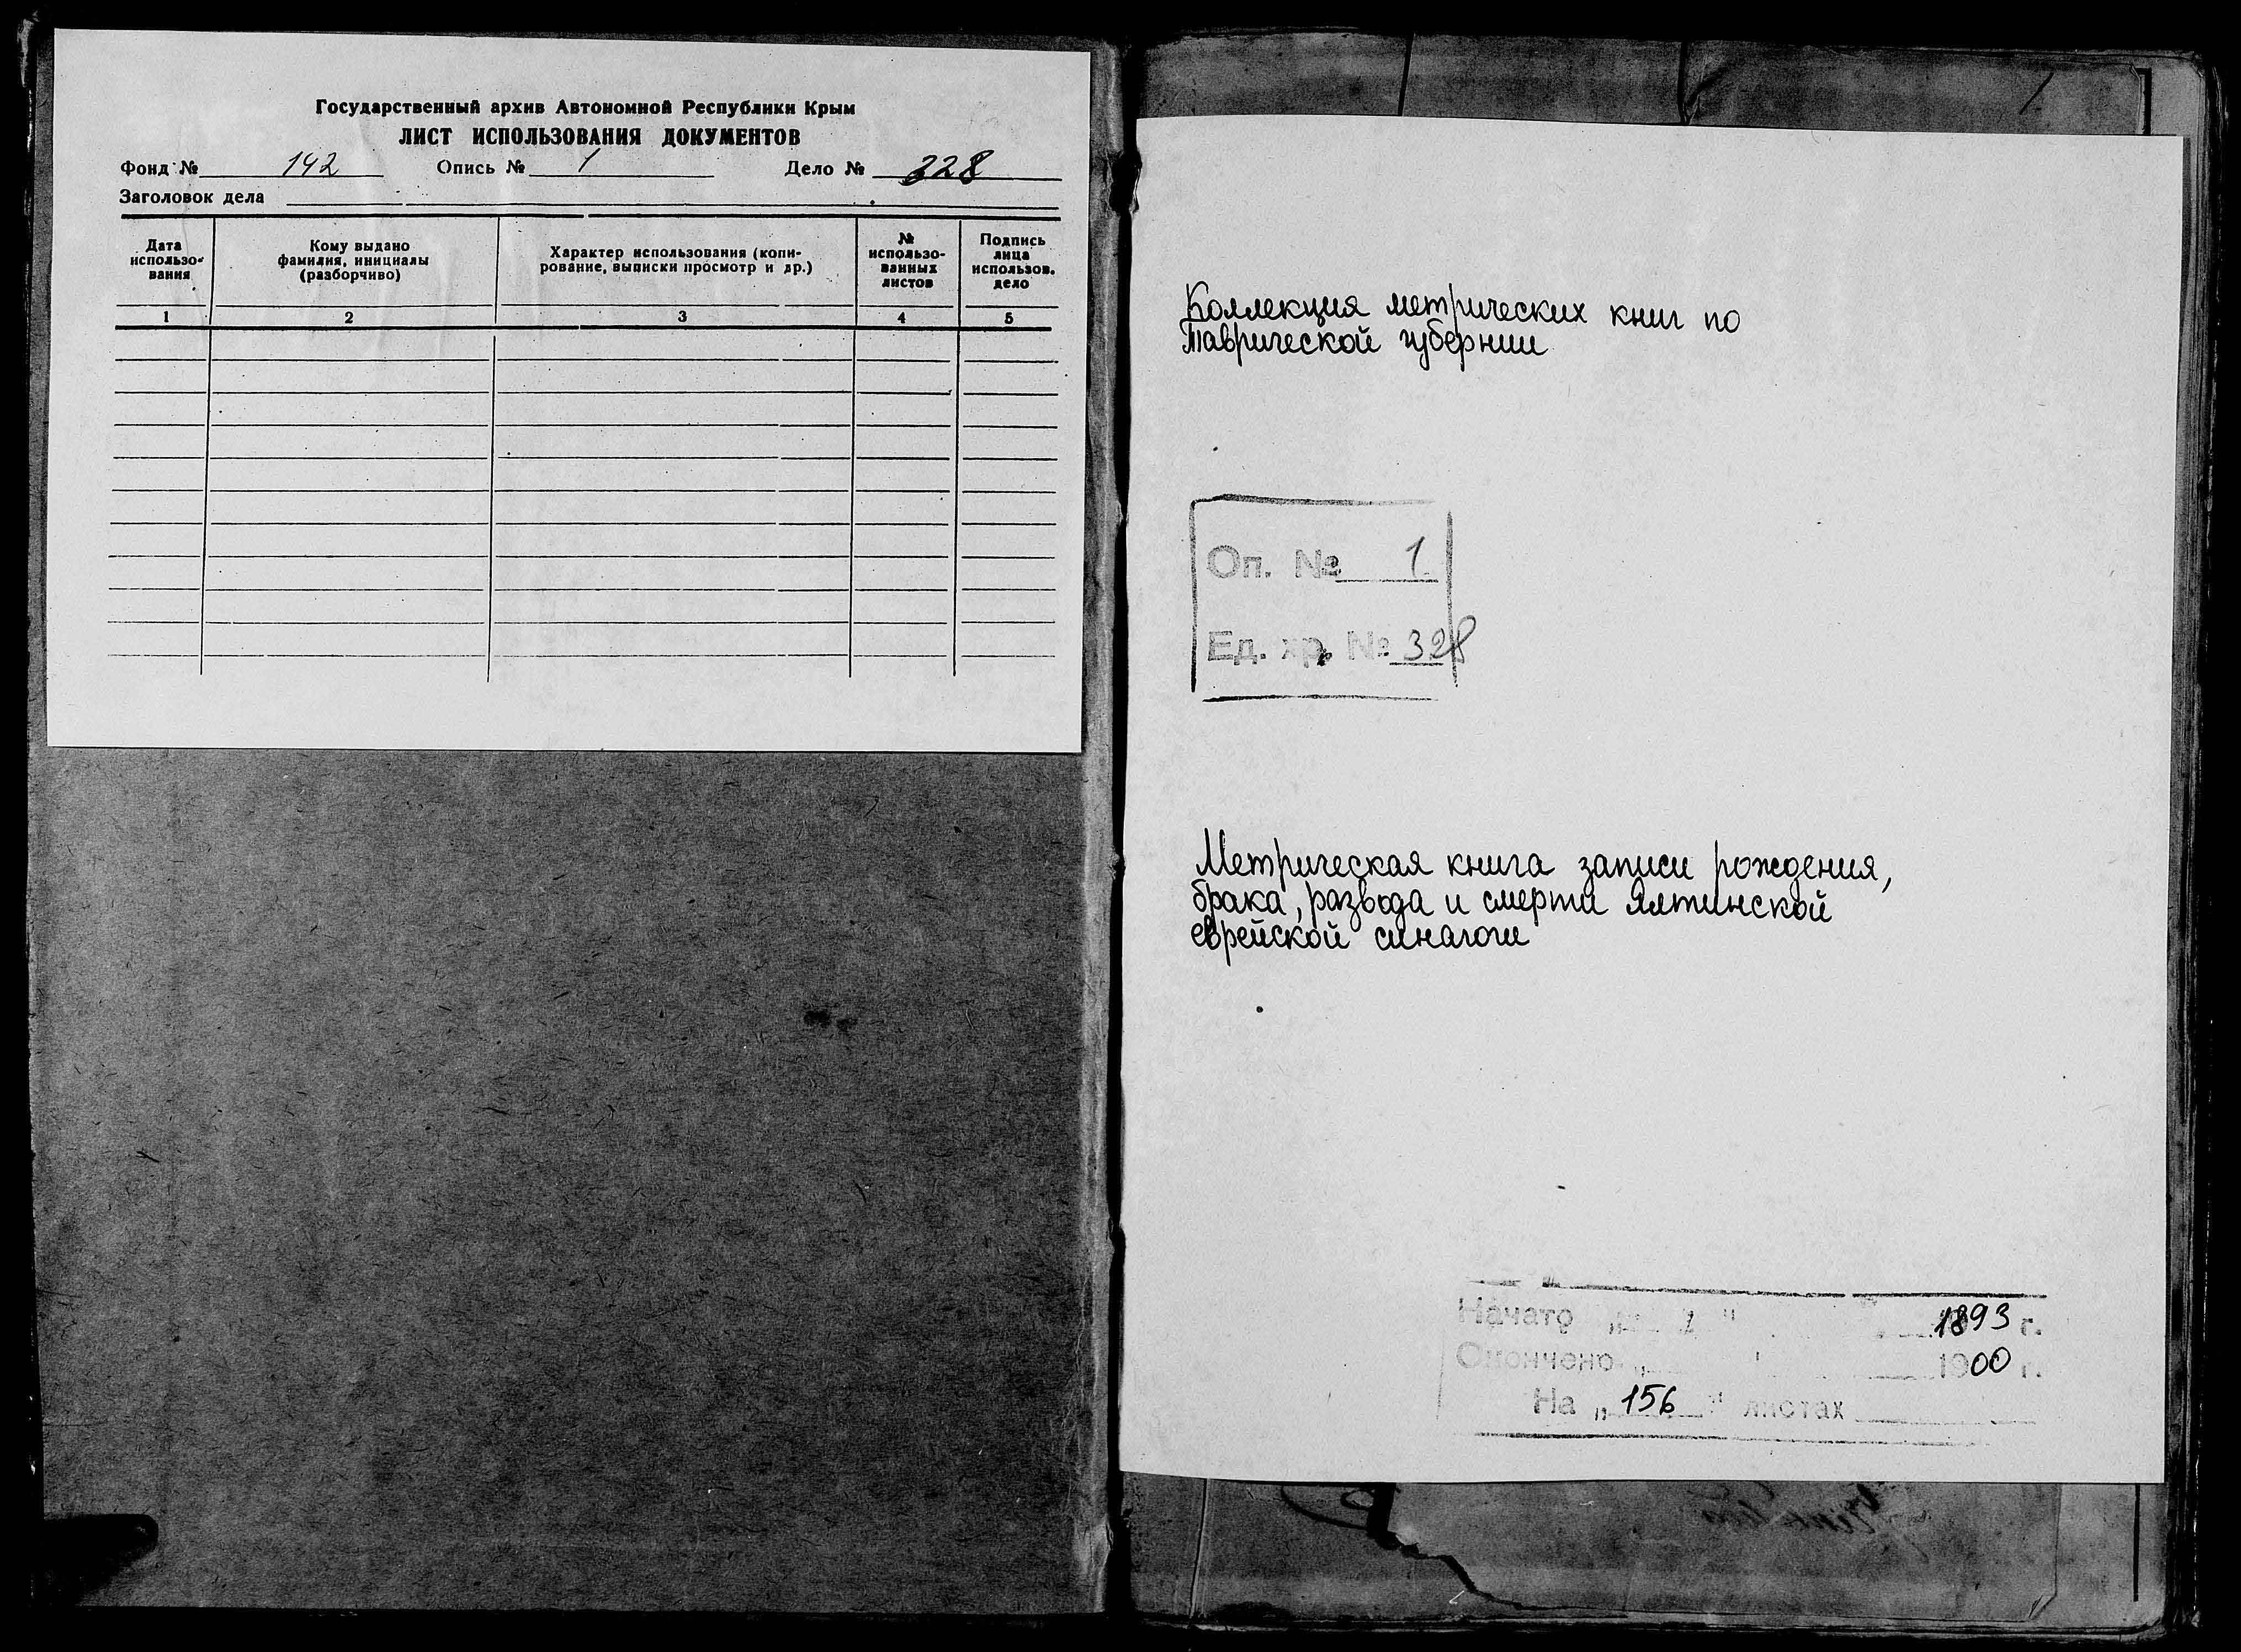 Государственный архив Автономной Республики Крым
ЛИСТ ИСПОЛЬЗОВАНИЯ ДОКУМЕНТОВ
Фонд № 142 Опись № 1 Дело № 328
Заголовок дела
Дата использо-вания
Кому выдано фамилия, инициалы (разборчиво)
Характер использования (копи-рование, выписки просмотр и др.)
№ использо-ванных листов
Подпись лица использов. дело
1 2 3 4 5
1
Коллекция метрических книг по
Таврической губернии
Оп. № 1
Ед. хр. № 328
Метрическая книга записи рождения,
брака, развода и смерти Ялтинской
еврейской синагоги
Начато „ " 1893 г.
Окончено „ 1900 г.
На „156" листах